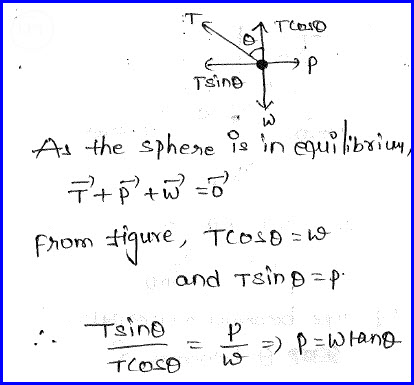 T TCosθ
θ
P
Tsinθ
W
As the sphere is in equilibrium,
T⃗ + P⃗ + W⃗ = 0⃗
From figure, TCosθ = W
and Tsinθ = P.
∴ Tsinθ/TCosθ = P/W ⇒ P = Wtanθ